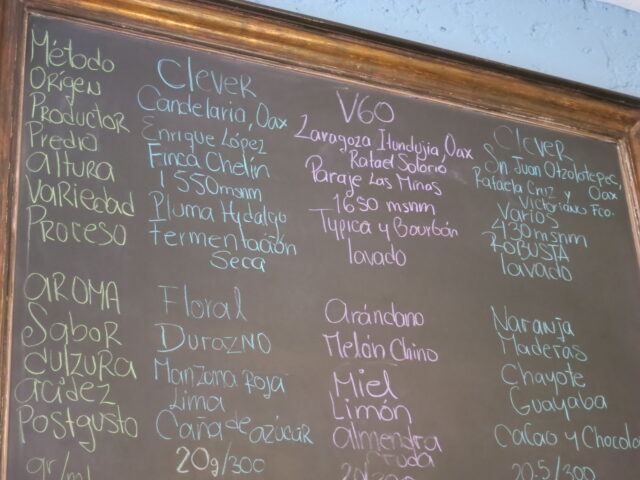 Método
Origen
Productor
Predio
Altura
Variedad
Proceso
AROMA
Sabor
dulzura
acidez
Postgusto
gr/ml
Clever
Candelaria, Oax
Enrique López
Finca Chelín
1,550msnm
Pluma Hydalgo
Fermentación
Seca
Floral
Durazno
Manzana Roja
Lima
Caña de azúcar
20g/300
V60
Zaragoza Itundujia, Oax
Rafael Solorio
Paraje Las Minas
1650 msnm
Typica y Bourbón
lavado
Arándano
Melón Chino
Miel
Limón
almendra
Cruda
20/300
Clever
Sn Juan Otzolotepec,
Oax
Rafaela Cruz y
Victoriano Fco.
Varios
430msnm
ROBUSTA
lavado
Naranja
Maderas
Chayote
Guayaba
Cacao y Chocola
20.5/300